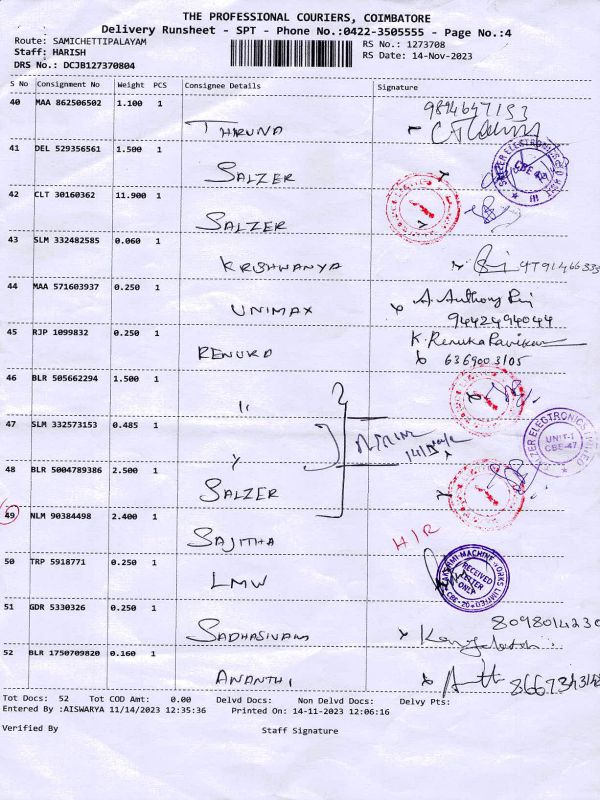 THE PROFESSIONAL COURIERS, COIMBATORE
Delivery Runsheet - SPT - Phone No.:0422-3505555 - Page No.:4
Route: SAMICHETTIPALAYAM RS No.: 1273708
Staff: HARISH RS Date: 14-Nov-2023
DRS No.: DCJB127370804
S No Consignment No Weight PCS Consignee Details Signature
40 MAA 862506502 1.100 1
THARUNA 9894647153
41 DEL 529356561 1.500 1
SALZER
42 CLT 30160362 11.900 1
SALZER
43 SLM 332482585 0.060 1
KRISHWANYA
44 MAA 571603937 0.250 1
UNIMAX A. Anthony Raj
9442494044
45 RJP 1099832 0.250 1 K. Renuka
RENUKA 6369003105
46 BLR 505662294 1.500 1
"
47 SLM 332573153 0.485 1
"
48 BLR 5004789386 2.500 1
SALZER
49 NLM 90384498 2.400 1
SAJITHA H/R
50 TRP 5918771 0.250 1
LMW
RECEIVED LETTER ONLY
51 GDR 5330326 0.250 1
SADHASIVAM 8098014230
52 BLR 1750709820 0.160 1
ANANTHI
Tot Docs: 52 Tot COD Amt: 0.00 Delvd Docs: Non Delvd Docs: Delvy Pts:
Entered By :AISWARYA 11/14/2023 12:35:36 Printed On: 14-11-2023 12:06:16
Verified By Staff Signature
SALZER ELECTRONICS LIMITED
UNIT-I
CBE-47